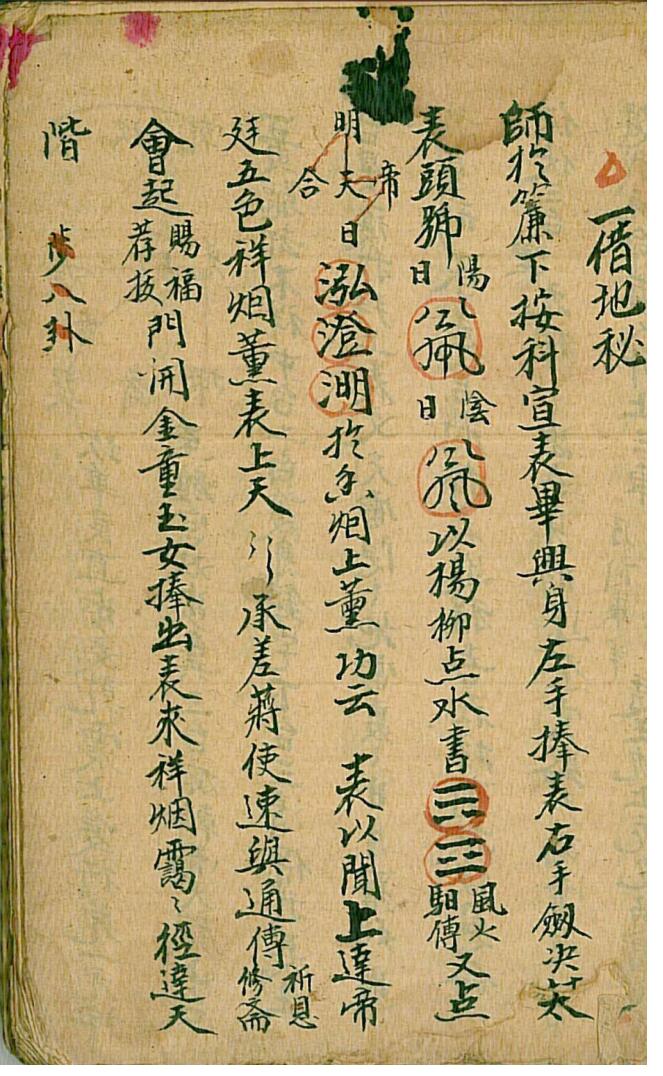 一借地秘
師於簾下按科宣表畢興身左手捧表右手劔决茭
表頭號陽日陰日以楊柳点水書☴☲風火馹傳又点
明天帝合日泓澄渊於香烟上薰功云 表以聞上達帝
廷五色祥烟薰表上天〻承差蔣使速與通傳祈恩修斋
會起賜福荐拔門開金童玉女捧出表來祥烟靄〻徑達天
階 步八卦